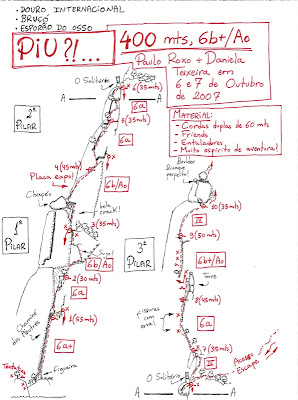 • DOURO INTERNACIONAL
• BRUÇÓ
• ESPORÃO DO OSSO
PiU?!...
400 mts, 6b+/Ao
Paulo Roxo + Daniela
Teixeira em
6 e 7 de Outubro
de 2007
MATERIAL:
- Cordas duplas de 60 mts
- Friends
- Entaladores
- Muito espírito de aventura!
O Solitário
A
A
6 (35mts)
6a
2º
PILAR
5 (35mts)
6a
4 (45mts)
Placa expo!
6b/Ao
Chapéu
bela crack!
3 (35mts)
1º
PILAR
6b/Ao
2 (30mts)
6a
Chaminé dos Abutres
1 (55mts)
6a+
Figueira
Boulder
Bivaque
perfeito!
10 (35mts)
III
9 (50mts)
3º
PILAR
6b+/Ao
Torre
8 (45mts)
fissuras com erva!
6a
7 (35mts)
III
O Solitário
Acesso
Escape
A
A